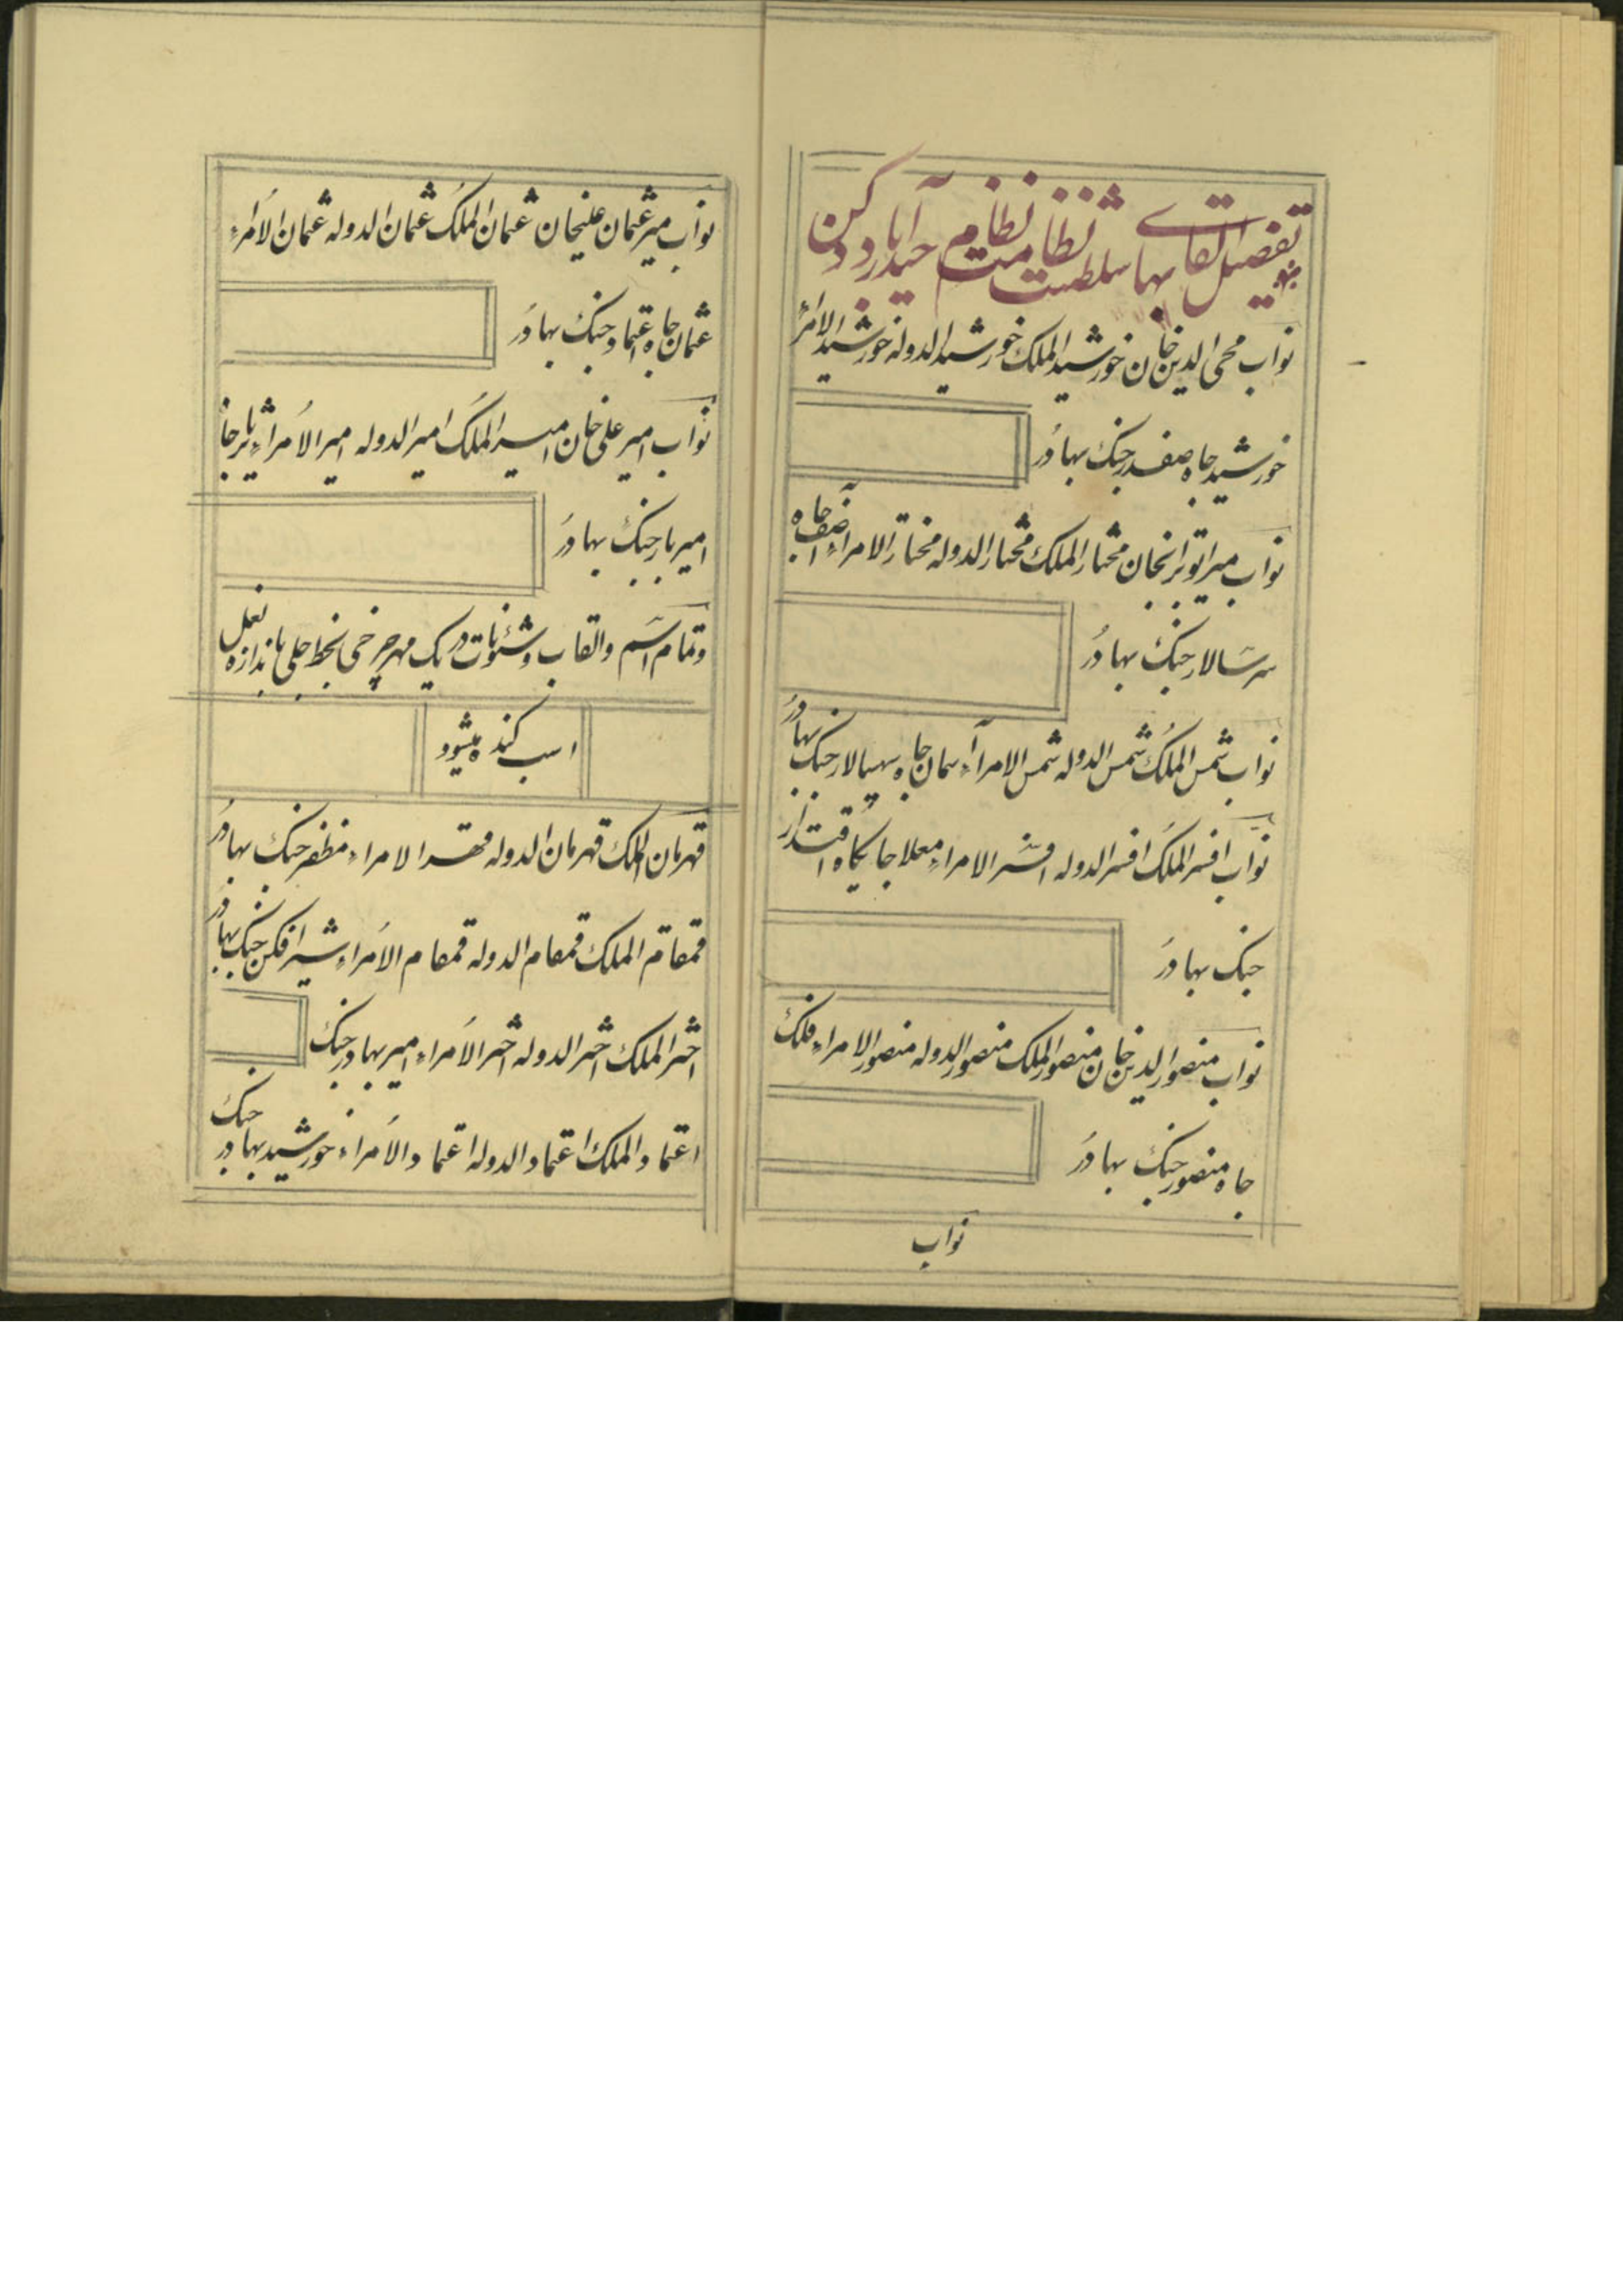 تفصیل القابهای سلطنت نظامت نظام حیدرآباد دکن
نواب محی الدین خان خورشید الملک خورشید الدوله خورشید الامراء
خورشید جاه صفدر جنک بهادر
نواب میر تراب علیخان مختار الملک مختار الدوله مختار الامراء آصف جاه
سر سالار جنک بهادر
نواب شمس الملک شمس الدوله شمس الامراء آسمان جاه سپهسالار جنک بهادر
نواب افسر الملک افسر الدوله افسر الامراء معلا جایکاه اقتدار
جنک بهادر
نواب منصور الدین خان منصور الملک منصور الدوله منصور الامراء فلک
جاه منصور جنک بهادر
نواب
نواب میر عثمان علیخان عثمان الملک عثمان الدوله عثمان الامراء
عثمان جاه اعتماد جنک بهادر
نواب امیر علی خان امیر الملک امیر الدوله امیر الامراء
امیر یار جنک بهادر
و تمام اسم و القاب و شئونات در یک مهر چرخی بخط جلی باندازه نعل
اسب کنده میشود
قهرمان الملک قهرمان الدوله الامراء مظفر جنک بهادر
قمقام الملک قمقام الدوله قمقام الامراء شیر افکن جنک بهادر
اختر الملک اختر الدوله اختر الامراء امیر بهادر جنک
اعتماد الملک اعتماد الدوله اعتماد الامراء خورشید بهادر جنک